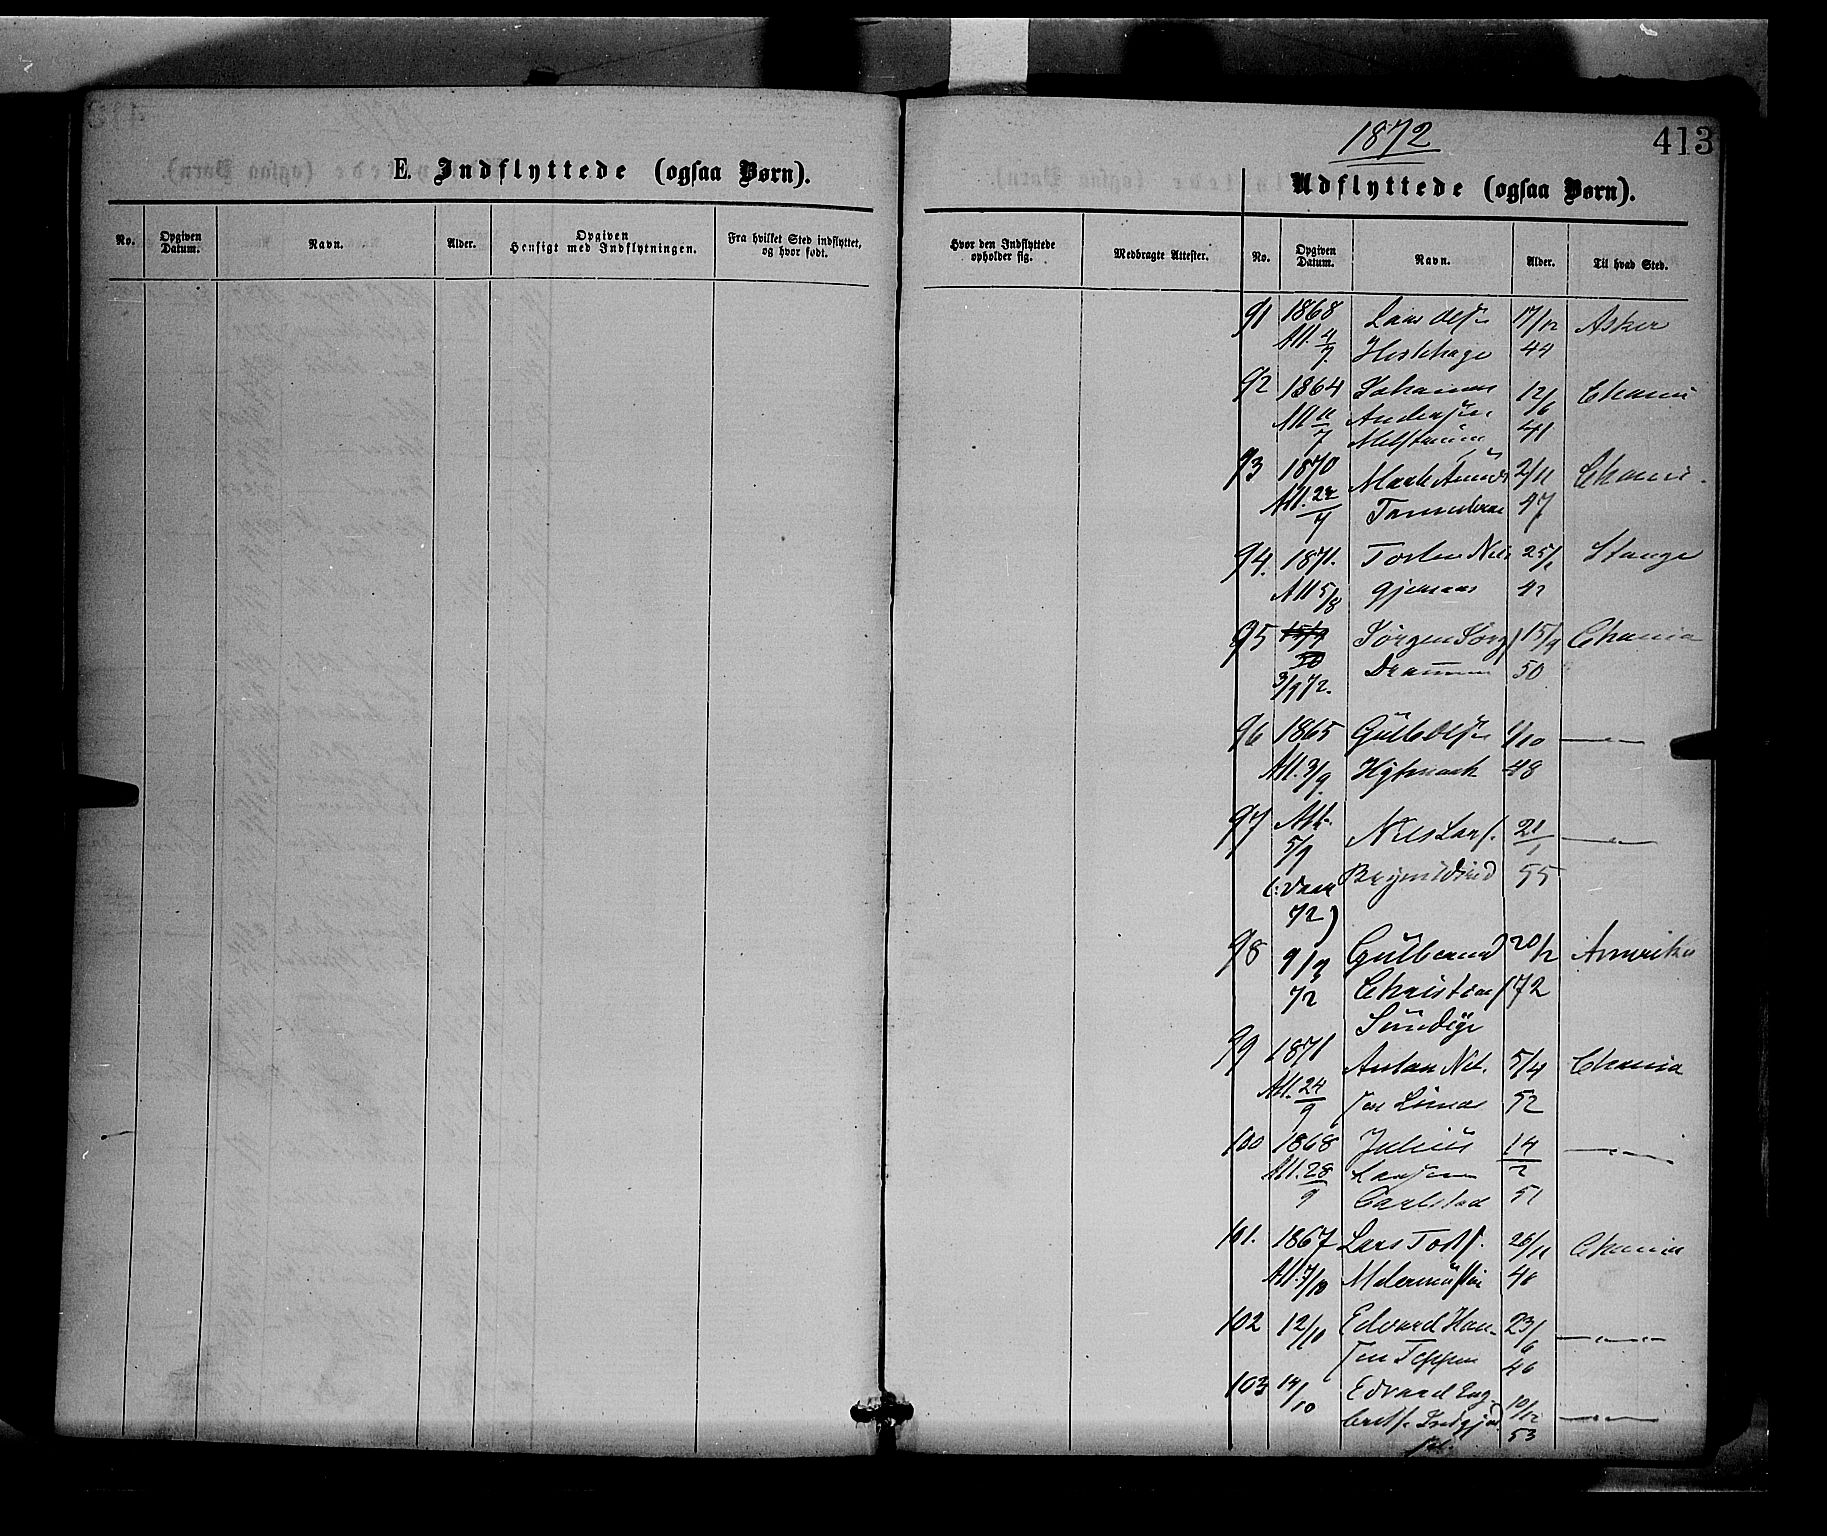 1872
413
E. Indflyttede (ogsaa Børn).
Udflyttede (ogsaa Børn).
No.
Opgiven Datum.
Navn.
Alder.
Opgiven Hensigt med Indflytningen.
Fra hvilket Sted indflyttet, og hvor født.
Hvor den Indflyttede opholder sig.
Medbragte Attester.
No.
Opgiven Datum.
Navn.
Alder.
Til hvad Sted.
91 1868 Lars Ols. 17/12 Asker
Att. 4/7 44
92 1864 Johannes 12/6 Chania
Att 11/7 Andersen 41
93 1870 2/11 Chania
Att. 24/7 47
94. 1871. Torsten Nils 25/1 Stange
Att 5/8 42
95 15/9 Jørgen Jørg 15/9 Chania
50 Drammen 50
3/9 72.
96 1865 Gulb Ols. 1/10 —
Att. 3/9 48
97 Att.
5/9 Nils Lars. 21/1 —
55
72)
98 9/9 Gulbrand 20/2 Amerika
72 Christians 72
99 1871 Anton Nil. 5/4 Chania
Att. 24/9 sen 52
100 1868 Julius 14/2 —
Att. 28/9 Larsen
Carlstad 51
101. 1867 Lars Tost. 26/11 Chania
Att. 7/10 46
102 12/10 Edvard Han- 23/6 —
sen Teppen 46
103 14/10 Edvard Eng
berts. 10/12 —
53